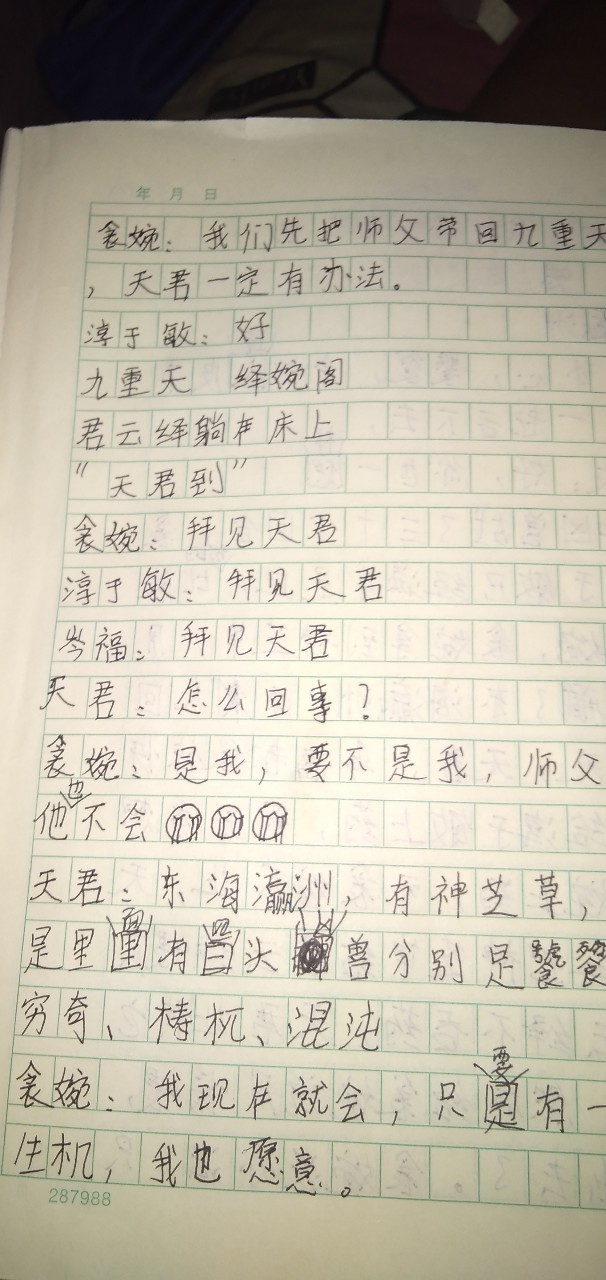 年 月 日
衾婉：我们先把师父带回九重天
，天君一定有办法。
淳于敏：好
九重天 绎婉阁
君云绎躺在床上
“天君到”
衾婉：拜见天君
淳于敏：拜见天君
岑福：拜见天君
天君：怎么回事？
衾婉：是我，要不是我，师父
他也不会
天君：东海瀛洲，有神芝草，
是里面有四头兽分别是饕餮
穷奇、梼杌、混沌
衾婉：我现在就会，只要有一
生机，我也愿意。
287988